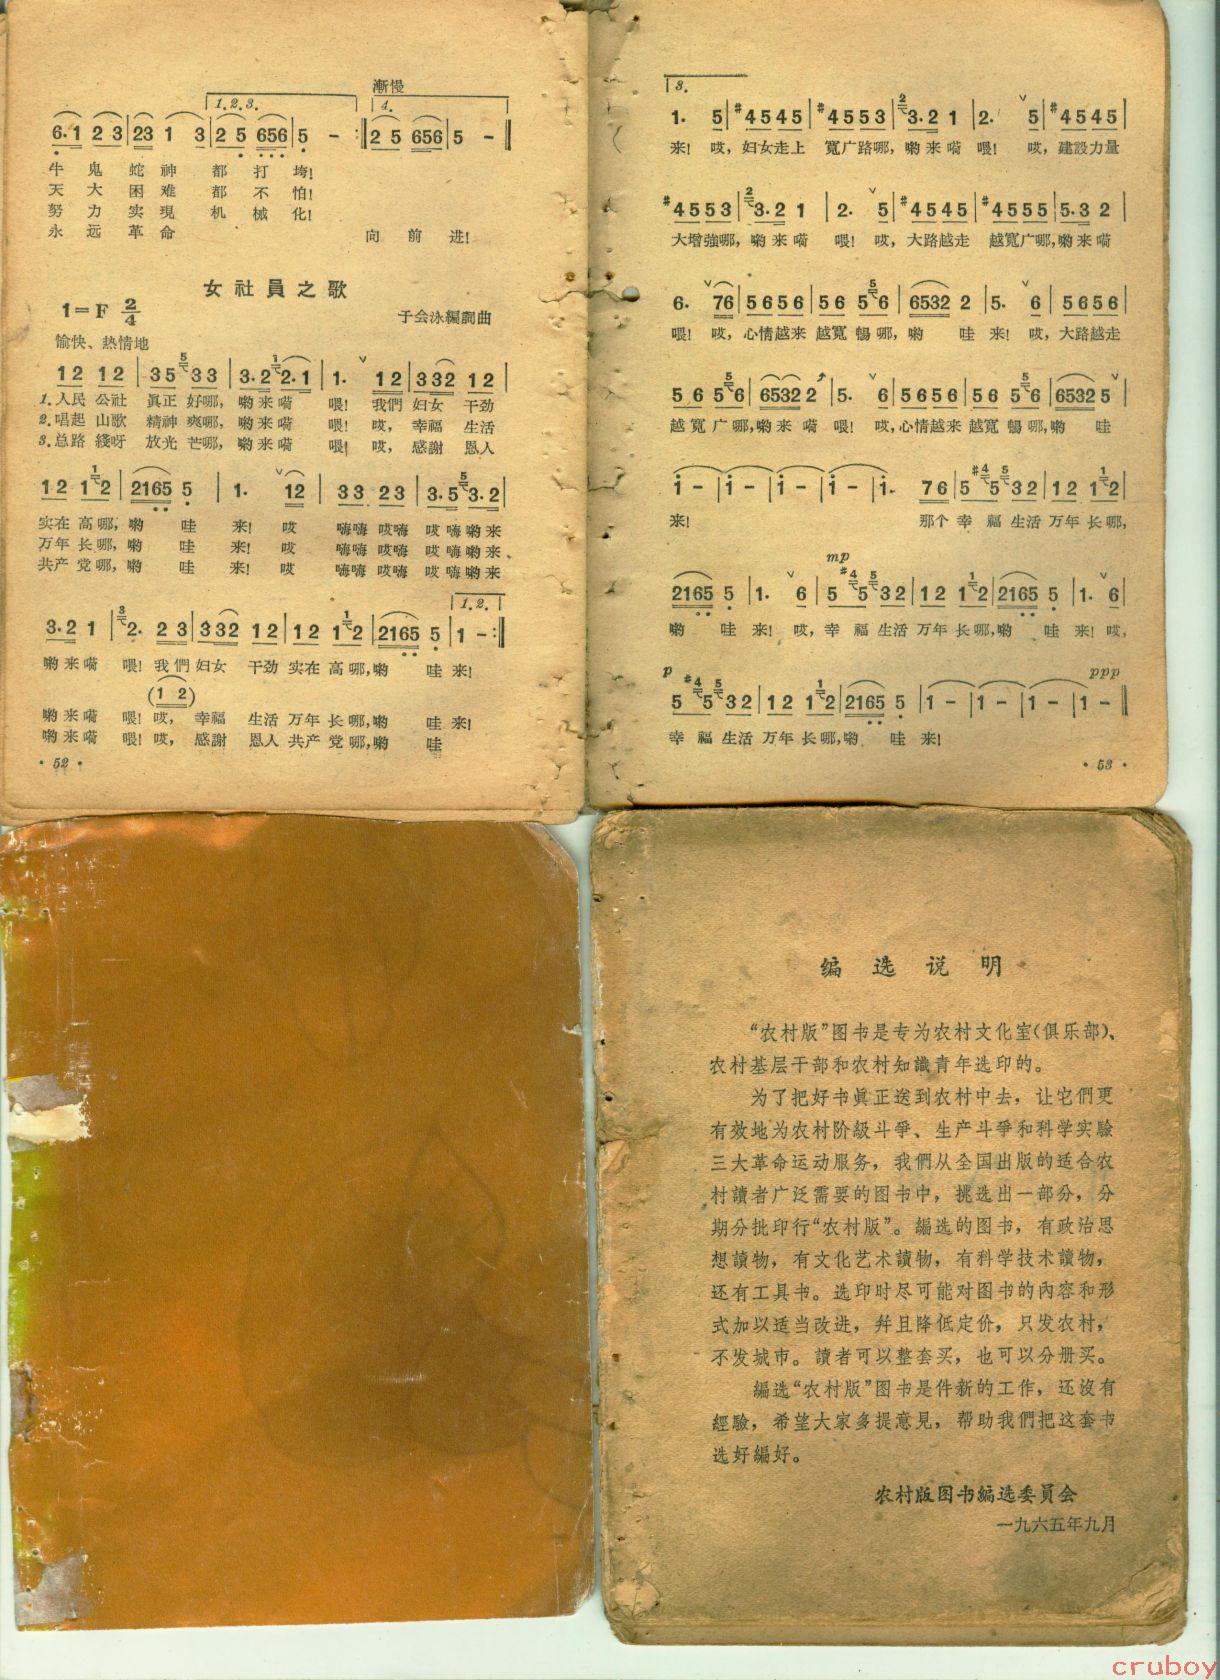 漸慢
1.2.3.
4.
6.1 2 3|23 1 3|2 5 656|5 - :‖2 5 656|5 -‖
牛鬼蛇神都打垮!
天大困难都不怕!
努力实現机械化!
永远革命 向前进!
女社員之歌
1=F 2/4
于会泳編詞曲
愉快、热情地
12 12|35 5 33|3.2 1 2.1|1. 12|332 12|
1.人民公社 眞正好哪,喲来嗬 喂!我們妇女 干劲
2.唱起山歌 精神爽哪,喲来嗬 喂!哎,幸福 生活
3.总路綫呀 放光芒哪,喲来嗬 喂!哎,感謝 恩人
12 1 1 2|2165 5|1. 12|33 23|3.5 5 3.2|
实在高哪,喲 哇 来!哎 嗨嗨哎嗨 哎嗨喲来
万年长哪,喲 哇 来!哎 嗨嗨哎嗨 哎嗨喲来
共产党哪,喲 哇 来!哎 嗨嗨哎嗨 哎嗨喲来
1.2.
3.2 1|3 2. 23|332 12|12 1 1 2|2165 5|1 - :‖
喲来嗬 喂!我們妇女 干劲实在高哪,喲 哇来!
(1 2)
喲来嗬 喂!哎,幸福 生活万年长哪,喲 哇来!
喲来嗬 喂!哎,感謝 恩人共产党哪,喲 哇
· 52 ·
3.
1. 5|#4545|#4553|2 3.2 1|2. 5|#4545|
来!哎,妇女走上 寬广路哪,喲来嗬 喂!哎,建設力量
#4553|2 3.2 1|2. 5|#4545|#4555|5.3 2|
大增強哪,喲来嗬 喂!哎,大路越走 越寬广哪,喲来嗬
6. 76|5656|56 5 5 6|6532 2|5. 6|5656|
喂!哎,心情越来 越寬暢哪,喲 哇来!哎,大路越走
56 5 5 6|6532 2|5. 6|5656|56 5 5 6|6532 5|
越寬广哪,喲来嗬 喂!哎,心情越来 越寬暢哪,喲 哇
1 -|1 -|1 -|1 -|1. 76|5 #4 5 5 32|12 1 1 2|
来! 那个幸福生活万年长哪,
mp
2165 5|1. 6|5 #4 5 5 32|12 1 1 2|2165 5|1. 6|
喲 哇来!哎,幸福生活万年长哪,喲 哇来!哎,
p
ppp
5 #4 5 5 32|12 1 1 2|2165 5|1 -|1 -|1 -|1 -‖
幸福生活万年长哪,喲 哇来!
· 53 ·
编选说明
“农村版”图书是专为农村文化室(俱乐部)、
农村基层干部和农村知識青年选印的。
为了把好书眞正送到农村中去，让它們更
有效地为农村阶級斗爭、生产斗爭和科学实驗
三大革命运动服务，我們从全国出版的适合农
村讀者广泛需要的图书中，挑选出一部分，分
期分批印行“农村版”。編选的图书，有政治思
想讀物，有文化艺术讀物，有科学技术讀物，
还有工具书。选印时尽可能对图书的內容和形
式加以适当改进，并且降低定价，只发农村，
不发城市。讀者可以整套买，也可以分册买。
編选“农村版”图书是件新的工作，还沒有
經驗，希望大家多提意見，帮助我們把这套书
选好編好。
农村版图书編选委員会
一九六五年九月
cruboy